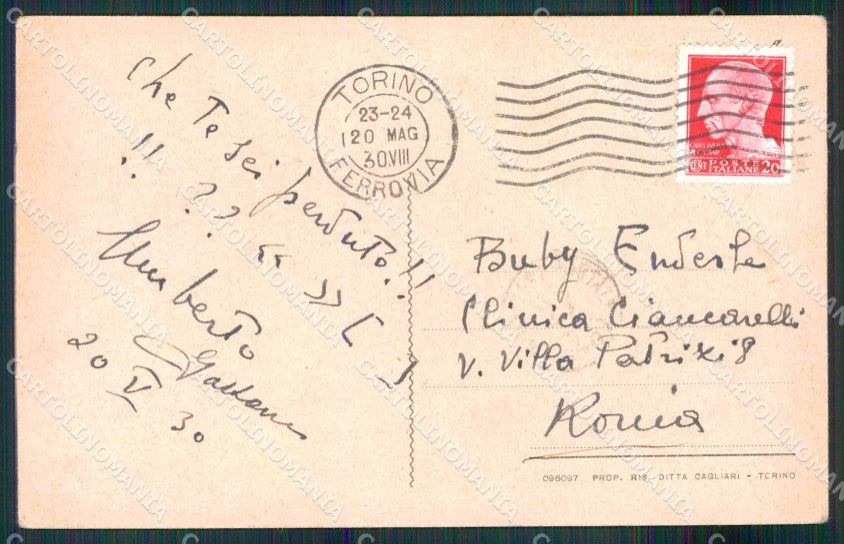 che Te sei perduto!!
!! ?? « » [ ]
Umberto
Gaetano
20 V 30
TORINO
23-24
20 MAG
30 VIII
FERROVIA
CENT POSTE 20
ITALIANE
Buby Enderle
Clinica Ciancarelli
V. Villa Patrizi 8
Roma
096097 PROP. RIS. DITTA CAGLIARI - TORINO
CARTOLINOMANIA